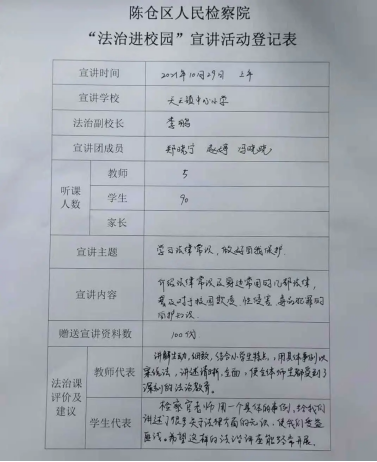 陈仓区人民检察院
“法治进校园”宣讲活动登记表
宣讲时间 2021年10月29日 上午
宣讲学校 天王镇中心小学
法治副校长 李鹏
宣讲团成员
听课人数 教师 5
学生 90
家长
宣讲主题 学习法律常识,做好自我保护.
宣讲内容 介绍法律常识及身边常用的几部法律,
普及对于校园欺凌 性侵害 毒品犯罪的
自护知识
赠送宣讲资料数 100份
法治课评价及建议 教师代表 讲解生动,细致,结合小学生特点,用具体事例以
案说法,讲述清晰,全面,使全体师生都受到了
深刻的法治教育.
学生代表 检察官老师用一个个具体的事例,给我们
讲述了很多关于法律方面的知识,使我们受益
匪浅.希望这样的法治讲座能经常开展.